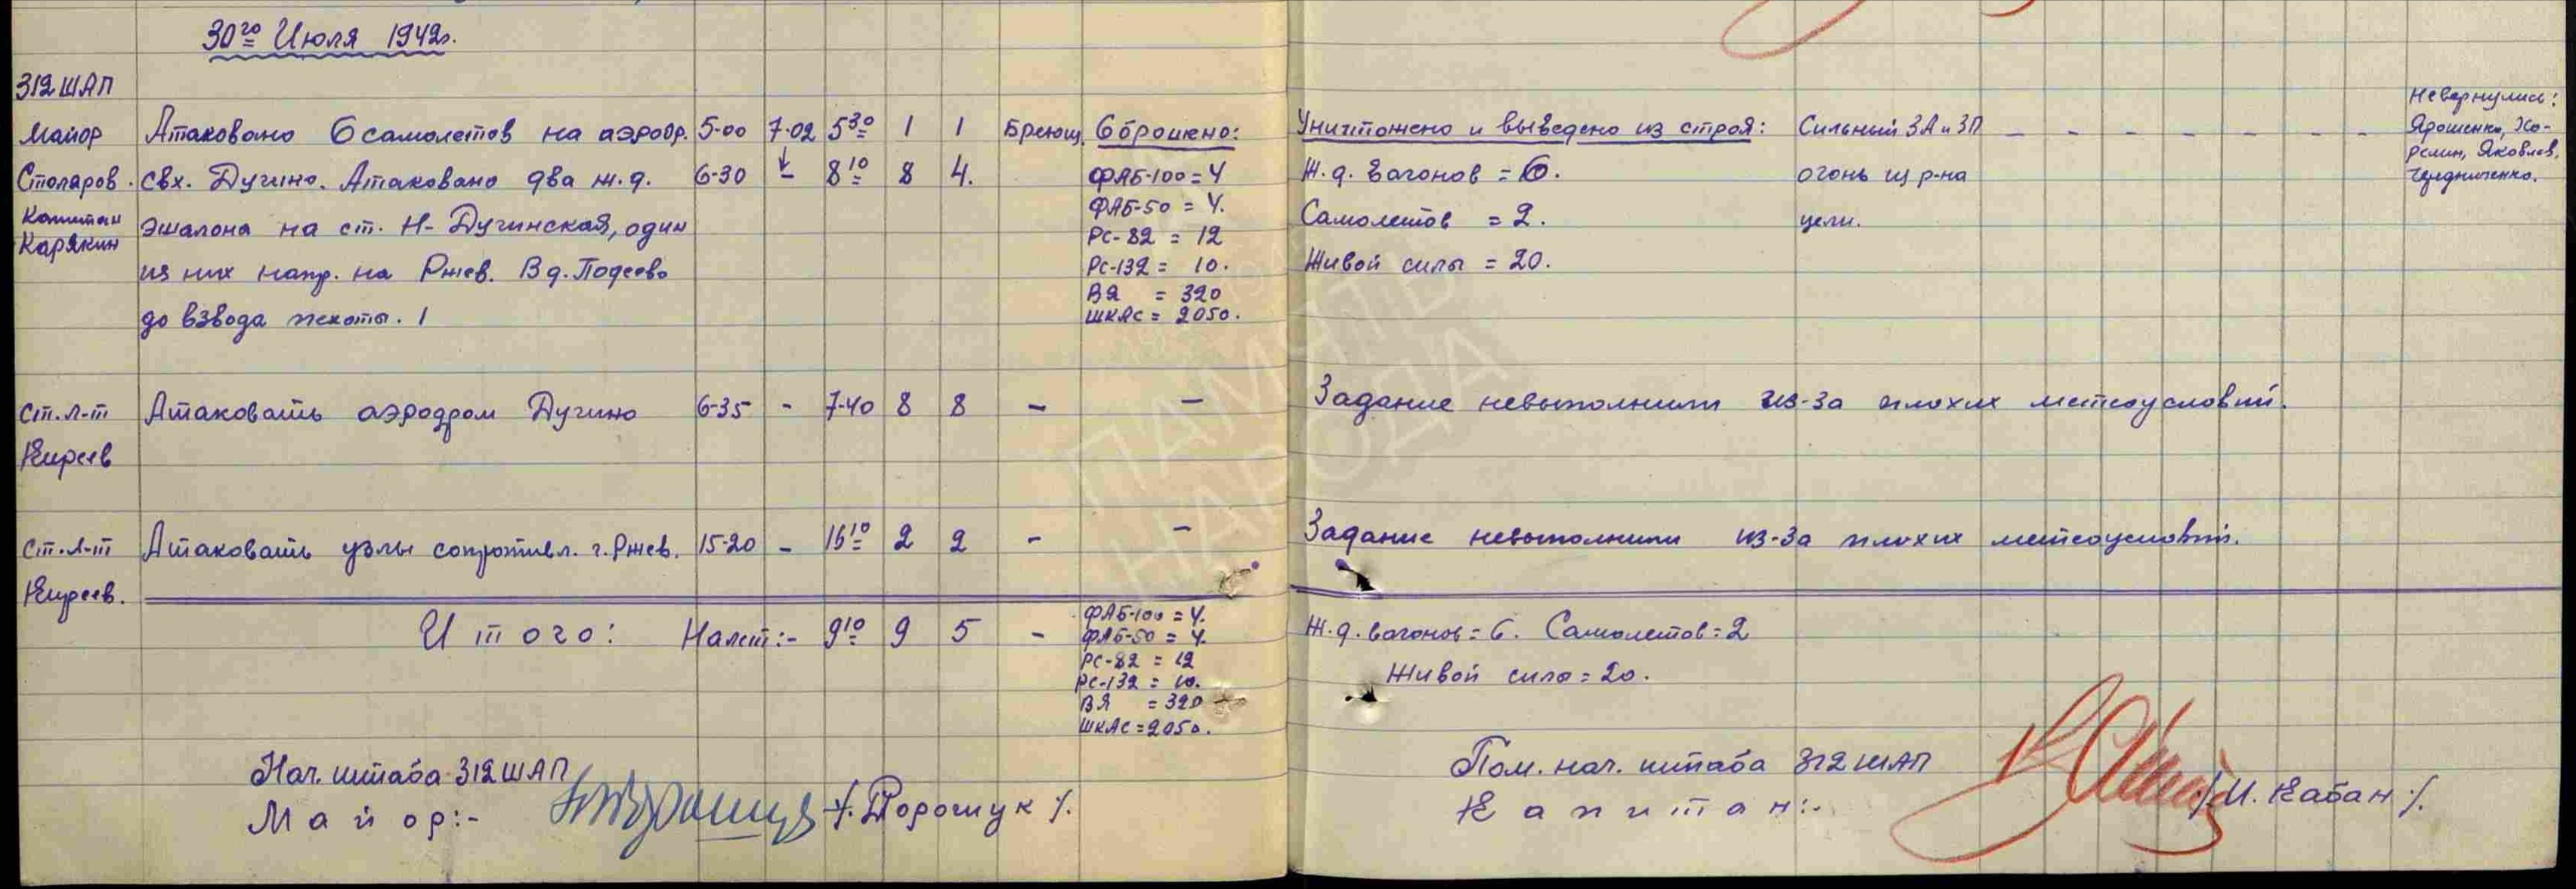 30го Июля 1942г.
312 ШАП
Майор Атаковано 6 самолетов на аэродр. 5-00 7-02 5 30 1 1 Бреющ. Сброшено: Уничтожено и выведено из строя: Сильный ЗА и ЗП – – – – – – Невернулись:
Столяров. свх. Дугино. Атаковано два ж.д. 6-30 – 8 10 8 4. ФАБ-100 = 4 Ж.д. вагонов = 6. огонь из р-на Ярошенко, Ко-
Капитан Карякин эшалона на ст. Н-Дугинская, один ФАБ-50 = 4. Самолетов = 2. цели. релин, Яковлев,
из них напр. на Ржев. В д. Подсево РС-82 = 12 Живой силы = 20. Чередниченко.
до взвода пехоты. РС-132 = 10.
ВЯ = 320
ШКАС = 2050.
Ст. л-т Атаковать аэродром Дугино 6-35 - 7-40 8 8 – – Задание невыполнили из-за плохих метеоусловий.
Киреев
Ст. л-т Атаковать узлы сопротивл. г. Ржев. 15-20 - 16 10 2 2 - - Задание невыполнили из-за плохих метеоусловий.
Киреев.
Итого: Налет:- 9 10 9 5 - ФАБ-100 = 4. Ж.д. вагонов = 6. Самолетов = 2
ФАБ-50 = 4. Живой силы = 20.
РС-82 = 12
РС-132 = 10.
ВЯ = 320
ШКАС = 2050.
Нач. штаба 312 ШАП Пом. нач. штаба 312 ШАП
Майор:- /. Дорощук /. Капитан:- /И. Кабан /.
ПАМЯТЬ
НАРОДА